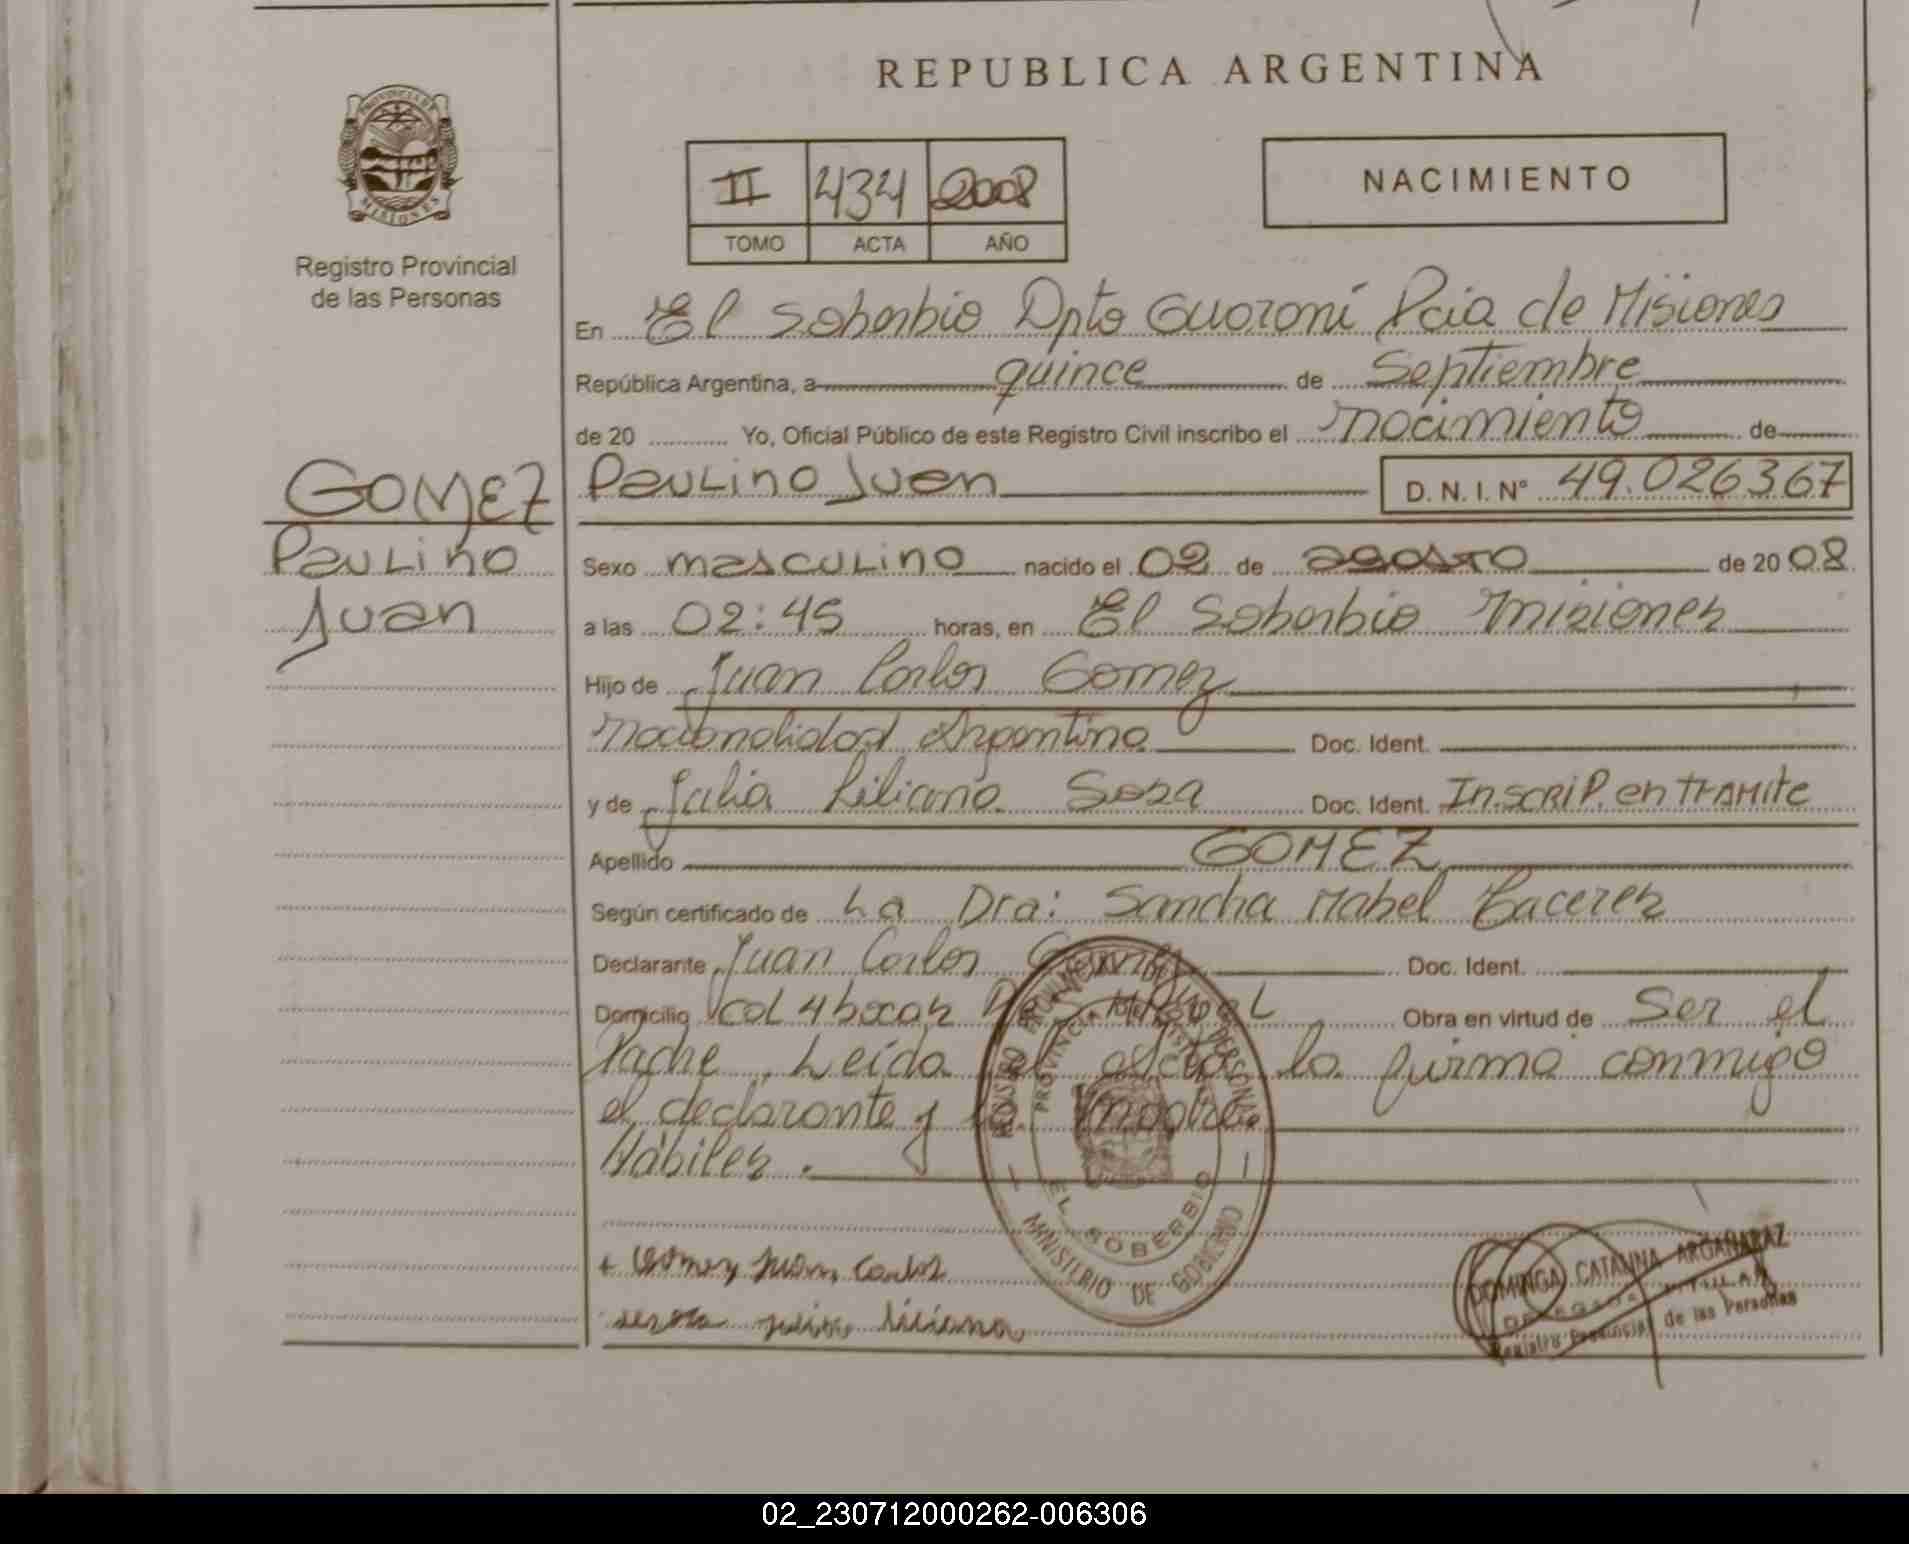 REPUBLICA ARGENTINA
PROVINCIA DE
MISIONES
Registro Provincial
de las Personas
II 434 2008
TOMO ACTA AÑO
NACIMIENTO
En El Soberbio Dpto Guaraní Pcia de Misiones
República Argentina, a quince de Septiembre
de 20 Yo, Oficial Público de este Registro Civil inscribo el nacimiento de
GOMEZ
Paulino
Juan
Paulino Juan D. N. I. Nº 49.026367
Sexo masculino nacido el 02 de agosto de 2008
a las 02:45 horas, en El Soberbio Misiones
Hijo de Juan Carlos Gomez
nacionalidad Argentina Doc. Ident.
y de Julia Liliana Sosa Doc. Ident. Inscrip. en tramite
Apellido GOMEZ
Según certificado de La Dra: Sandra Mabel Caceres
Declarante Juan Carlos Gomez Doc. Ident.
Domicilio Col 4 bocas Obra en virtud de Ser el
Padre. Leída el acta la firma conmigo
el declarante y la madre
Hábiles.
REGISTRO PROVINCIAL DE LAS PERSONAS
PROVINCIA DE MISIONES
EL SOBERBIO
MINISTERIO DE GOBIERNO
+ Gomez Juan Carlos
julia liliana
DOMINGA CATALINA ARGAÑARAZ
DELEGADA TITULAR
Registro Provincial de las Personas
02_230712000262-006306